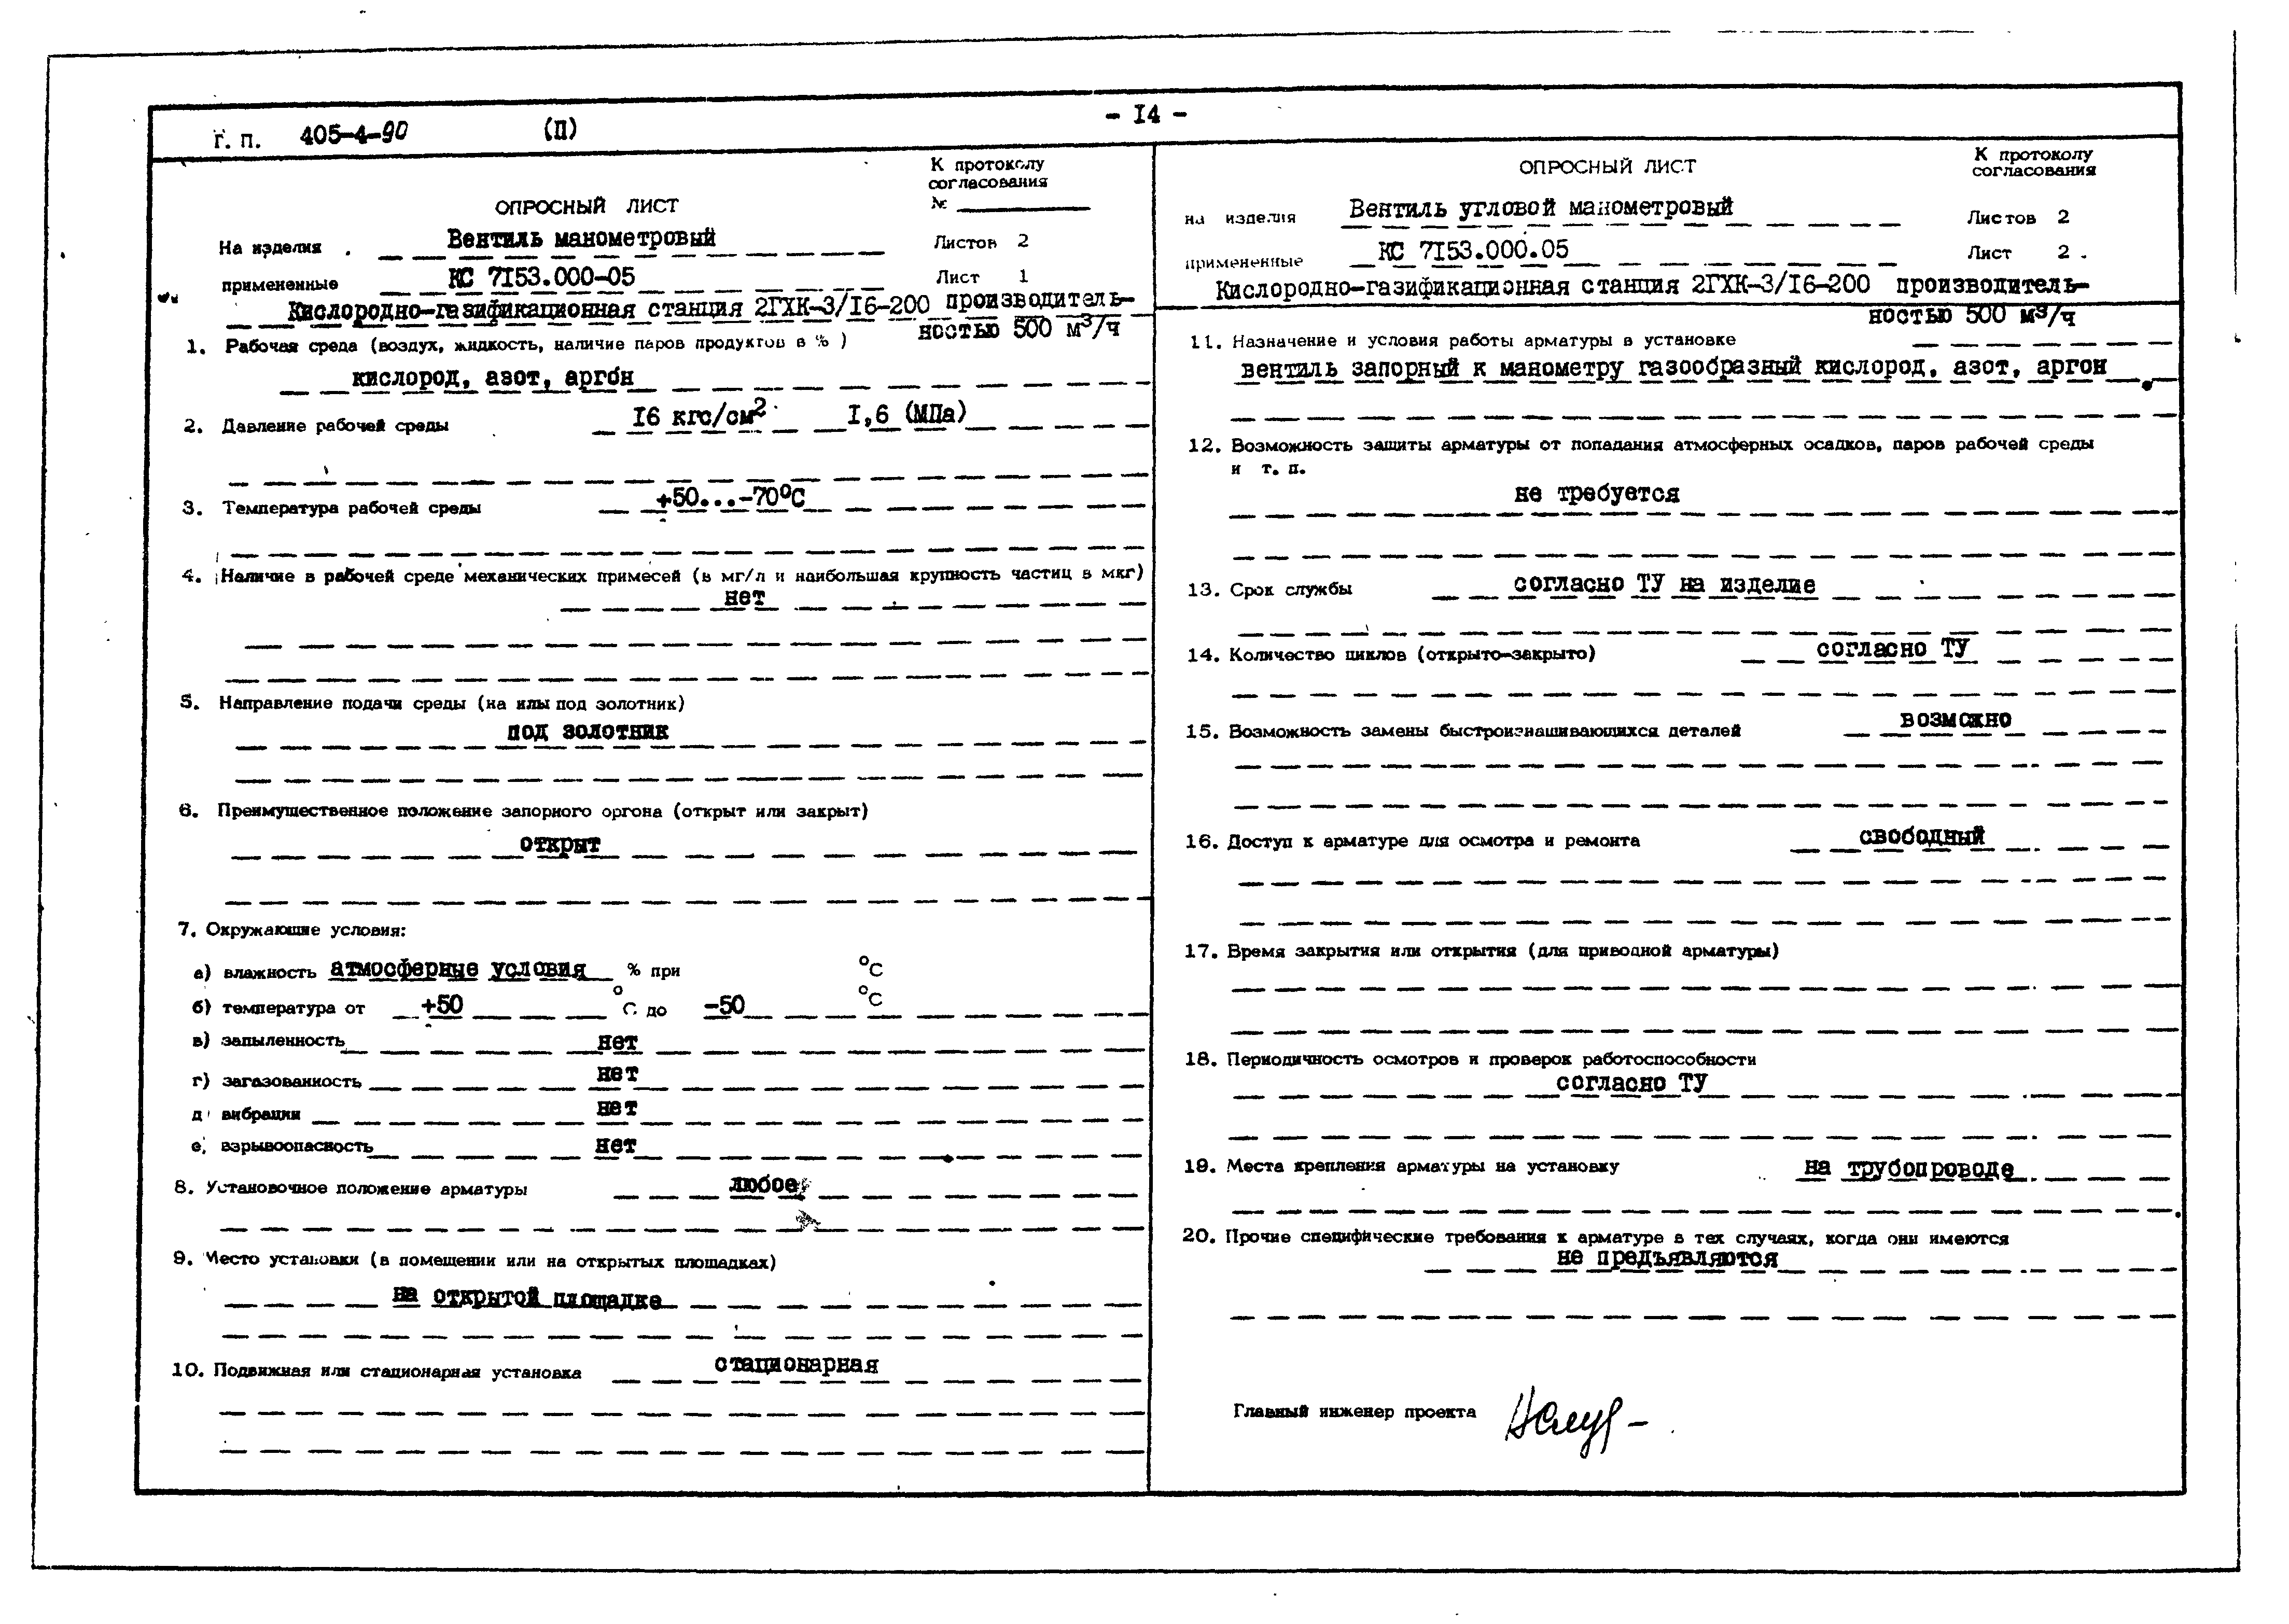 - I4 -
Г. П. 405-4-90 (П)
К протоколу
согласования
№
ОПРОСНЫЙ ЛИСТ
На изделия Вентиль манометровый Листов 2
примененные КС 7I53.000-05 Лист 1
Кислородно-газификационная станция 2ГХК-3/I6-200 производитель-
ностью 500 м³/ч
1. Рабочая среда (воздух, жидкость, наличие паров продуктов в % )
кислород, азот, аргон
2. Давление рабочей среды I6 кгс/см² I,6 (МПа)
3. Температура рабочей среды +50...-70°С
4. Наличие в рабочей среде механических примесей (в мг/л и наибольшая крупность частиц в мкг)
нет
5. Направление подачи среды (на или под золотник)
под золотник
6. Преимущественное положение запорного оргона (открыт или закрыт)
открыт
7. Окружающие условия:
а) влажность атмосферные условия % при °С
б) температура от +50 °С до -50 °С
в) запыленность нет
г) загазованность нет
д) вибрации нет
е) взрывоопасность нет
8. Установочное положение арматуры любое
9. Место установки (в помещении или на открытых площадках)
на открытой площадке
10. Подвижная или стационарная установка стационарная
ОПРОСНЫЙ ЛИСТ
К протоколу
согласования
на изделия Вентиль угловой манометровый Листов 2
примененные КС 7I53.000.05 Лист 2
Кислородно-газификационная станция 2ГХК-3/I6-200 производитель-
ностью 500 м³/ч
11. Назначение и условия работы арматуры в установке
вентиль запорный к манометру газообразный кислород, азот, аргон
12. Возможность защиты арматуры от попадания атмосферных осадков, паров рабочей среды
и т. п.
не требуется
13. Срок службы согласно ТУ на изделие
14. Количество циклов (открыто-закрыто) согласно ТУ
15. Возможность замены быстроизнашивающихся деталей возможно
16. Доступ к арматуре для осмотра и ремонта свободный
17. Время закрытия или открытия (для приводной арматуры)
18. Периодичность осмотров и проверок работоспособности
согласно ТУ
19. Места крепления арматуры на установку на трубопроводе
20. Прочие специфические требования к арматуре в тех случаях, когда они имеются
не предъявляются
Главный инженер проекта